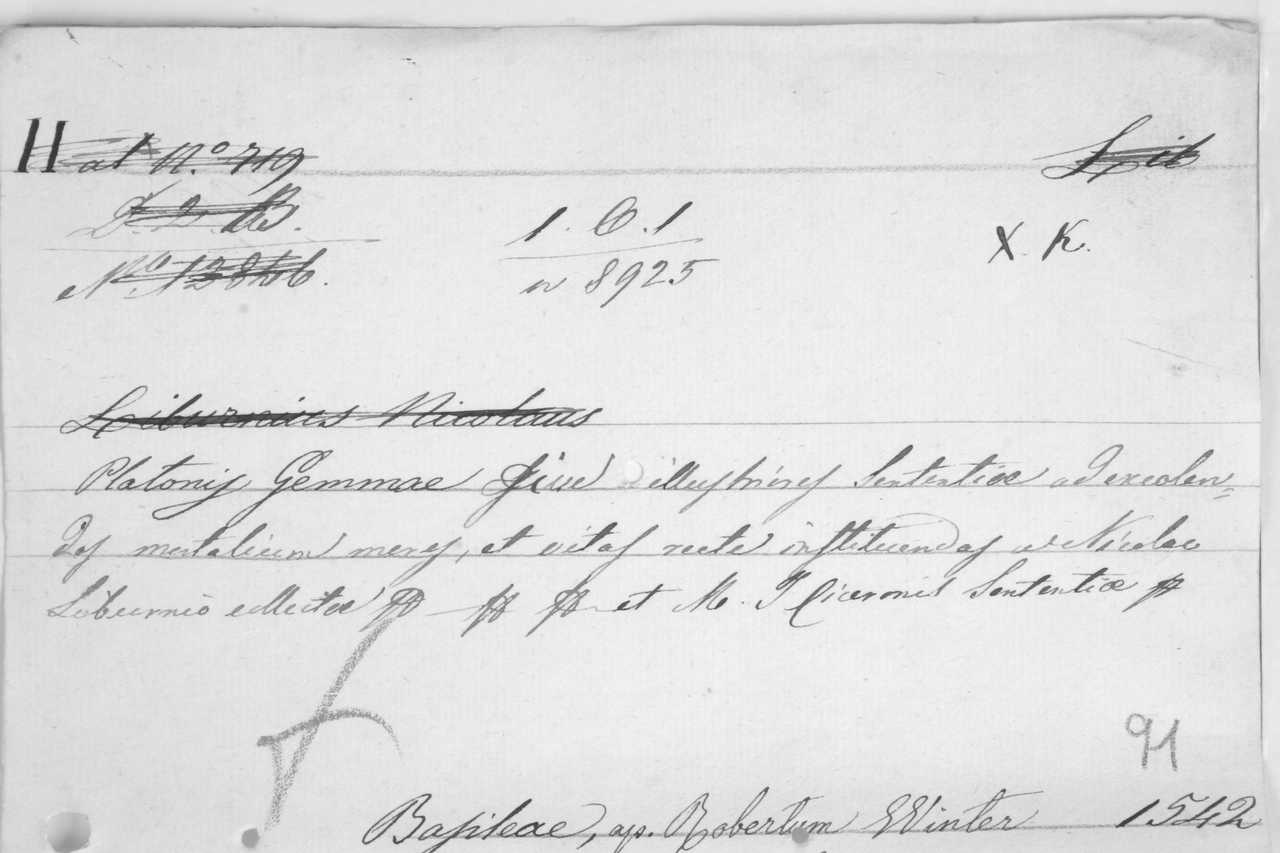 H at N.º 719 Lib
D. 2. B.
1. C. 1 X. K.
Nº. 12846.
n 8925
Liburnius Nicolaus
Platonis Gemmae sive illustriores Sententiæ ad excolen=
das mortalium mores, et vitas recte instituendas a Nicolao
Liburnio collectæ et M. T Ciceronis Sententiæ
91
Basileae, ap. Robertum Winter 1542